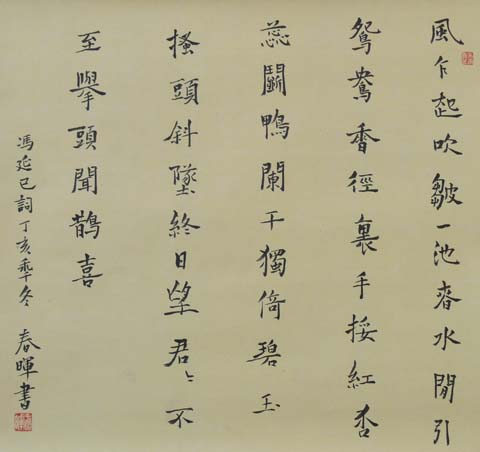 風乍起吹皺一池春水閒引
鴛鴦香徑裏手挼紅杏
蕊鬭鴨闌干獨倚碧玉
搔頭斜墜終日望君々不
至舉頭聞鵲喜
馮延巳詞丁亥季冬 春暉書